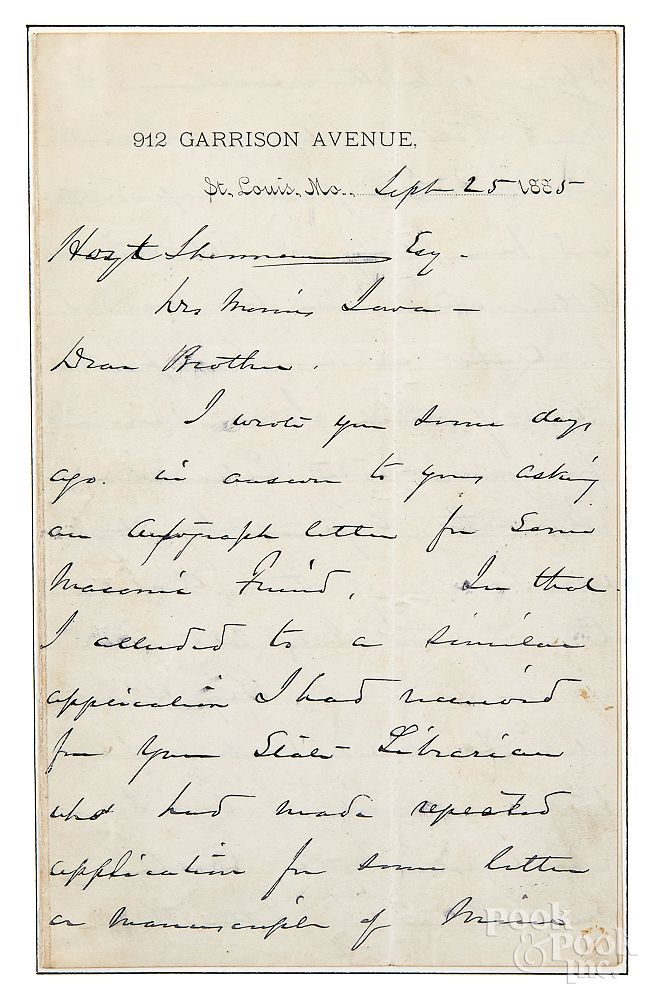 912 GARRISON AVENUE,
St. Louis, Mo., Sept 25 1885
Hoyt Sherman Esq -
Des Moines Iowa -
Dear Brother.
I wrote you some days
ago. in answer to yours asking
an Autograph letter for some
Masonic Friend. In that
I alluded to a similar
application I had received
from your State Librarian
who had made repeated
application for some letter
or manuscripts of mine
Pook
& Pook
Inc.